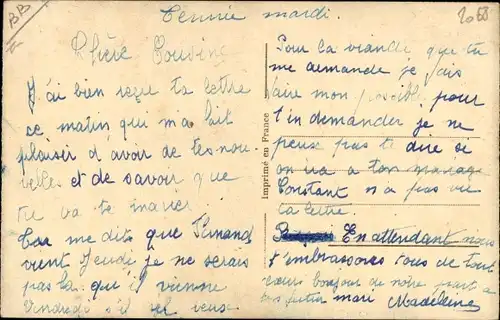 BB
2068
mardi.
Chère Cousine
J'ai bien reçu ta lettre
ce matin qui m'a fait
plaisir d'avoir de tes nou
velles et de savoir que
tu va te marier
me dits que Fernand
vient Jeudi je ne serais
pas la qu'il vienne
Vendredi s'il veux
Imprimé en France
Pour la viande que tu
me demande je fais
faire mon possible pour
t'in demander je ne
peux pas te dire si
on ira a ton mariage
Constant n'a pas vu
ta lettre.
En attendant nous
t'embrassons tous de tout
cœur bonjour de notre part a
ton futur mari Madeleine